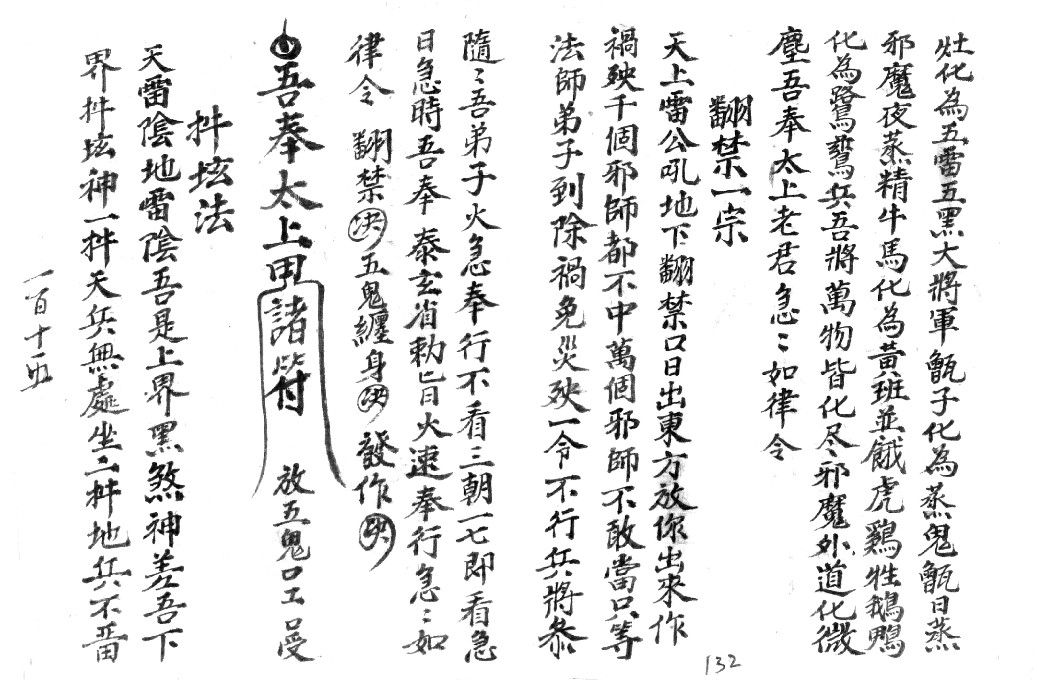 灶化為五雷五黑大將軍甑子化為蒸鬼甑日蒸
邪魔夜蒸精牛馬化為黃班並餓虎鷄牲鵝鴨
化為鷺鷥兵吾將萬物皆化尽邪魔外道化微
塵吾奉太上老君急〻如律令
翻禁一宗
天上雷公吼地下翻禁口日出東方放你出來作
禍殃千個邪師都不中萬個邪師不敢當只等
法師弟子到除禍免災殃一令不行兵將叅
隨〻吾弟子火急奉行不看三朝一七即看急
日急時吾奉 泰玄省勅旨火速奉行急〻如
律令 翻禁决五鬼纏身决發作决
吾奉太上 諸符 放五鬼口工口受
抖垓法
天雷陰地雷陰吾是上界黑煞神差吾下
界抖垓神一抖天兵無處坐二抖地兵不畱
一百十五
132